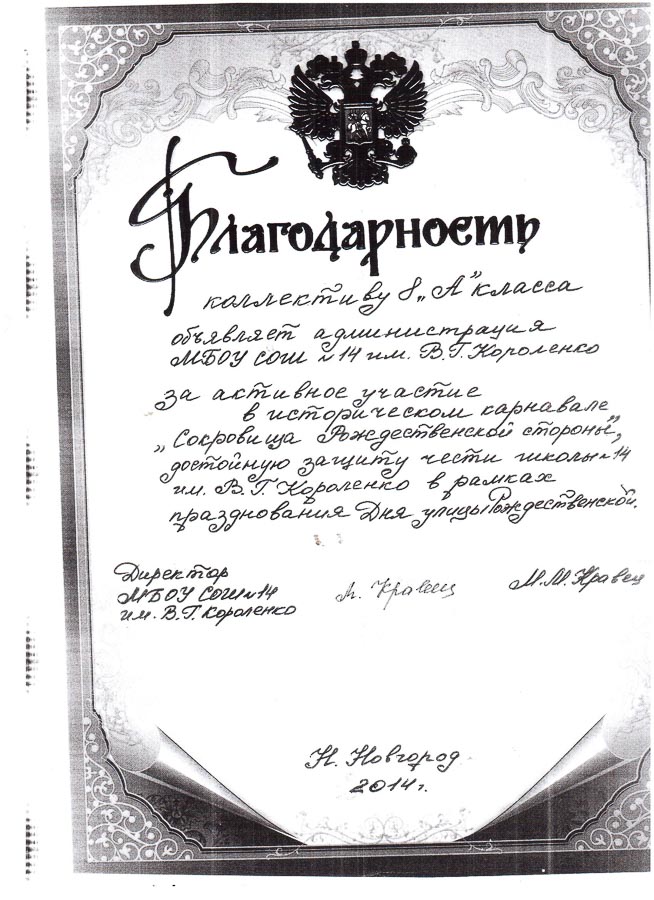 Благодарность
коллективу 8 „А" класса
объявляет администрация
МБОУ СОШ №14 им. В.Г. Короленко
за активное участие
в историческом карнавале
„Сокровища Рождественской стороны",
достойную защиту чести школы №14
им. В.Г. Короленко в рамках
празднования Дня улицы Рождественской.
Директор
МБОУ СОШ №14
им. В.Г. Короленко
М. Кравец
М.М. Кравец
Н. Новгород
2014г.